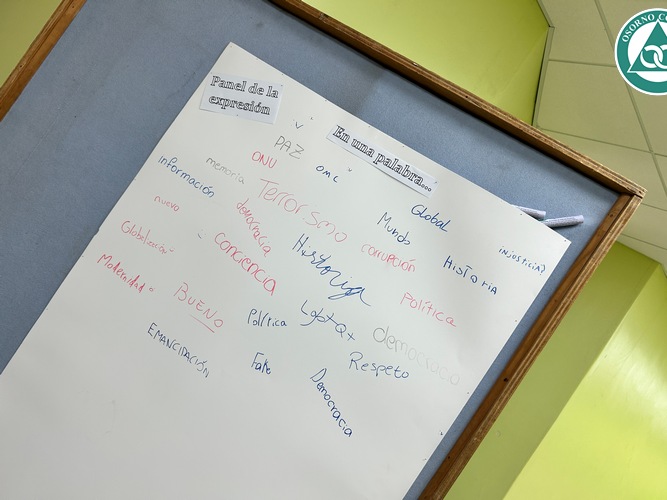 Panel de la
expresión
En una palabra...
PAZ
ONU
OMC
memoria
Información
Terrorismo
Global
Mundo
injusticia?
nuevo
democracia
Historia
corrupción
Historia
Globalización
conciencia
Política
Modernidad
BUENO
Política
Lgbtq+
democracia
EMANCIPACIÓN
Fake
Respeto
Democracia
OSORNO CO